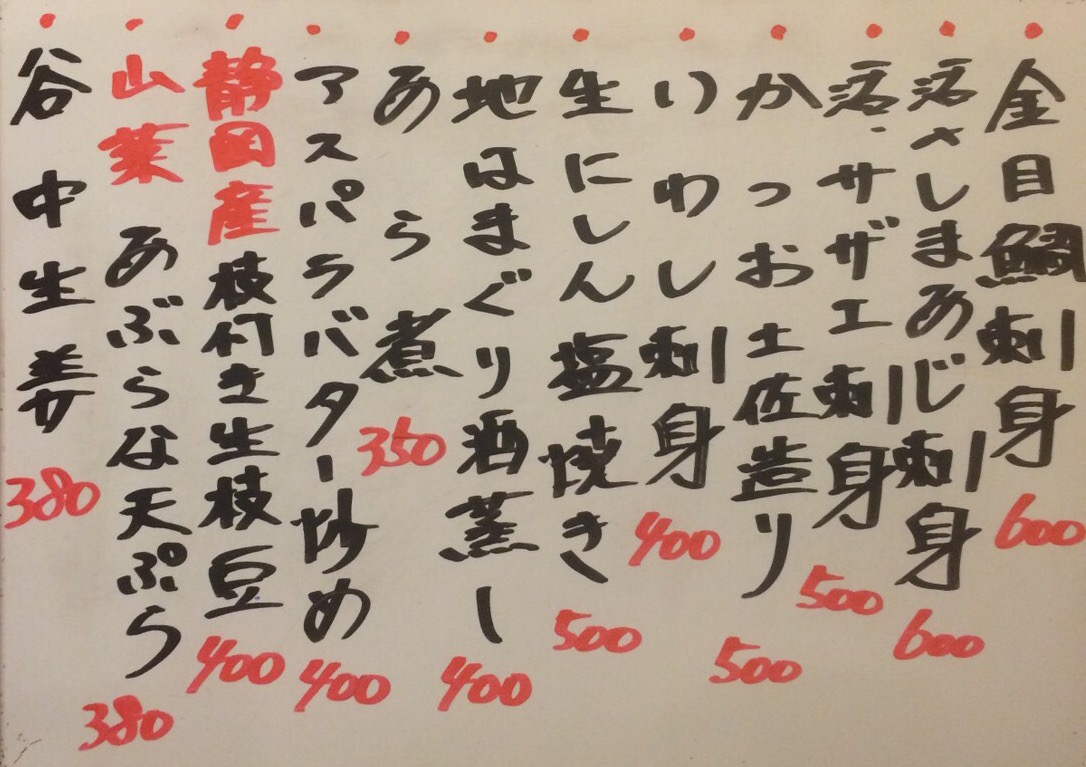 金目鯛刺身 600
活〆しまあじ刺身 600
活・サザエ刺身 500
かつお土佐造り 500
いわし刺身 400
生にしん塩焼き 500
地はまぐり酒蒸し 400
あら煮 350
アスパラバター炒め 400
静岡産枝付き生枝豆 400
山菜 あぶらな天ぷら 380
谷中生姜 380